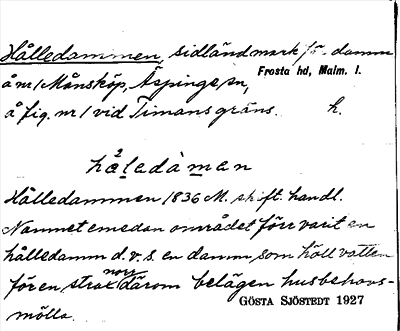 Hålledammen, sidländ mark, f.d. damm
Frosta hd, Malm. l.
å nr 1 Månsköp, Äspinge sn,
å fig. nr 1 vid Timans gräns. h.
hålledàmen
Hålledammen 1836 M. skift. handl.
Namnet emedan området förr varit en
hålledamm d.v.s. en damm, som höll vatten
för en strax norr därom belägen husbehovs-
mölla.
GÖSTA SJÖSTEDT 1927